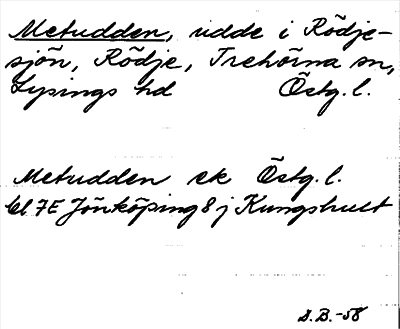 Metudden, udde i Rödje-
sjön, Rödje, Trehörna sn,
Lysings hd Östg. l.
Metudden ek Östg. l.
bl 7E Jönköping 8 j Kungshult
S.B.-58